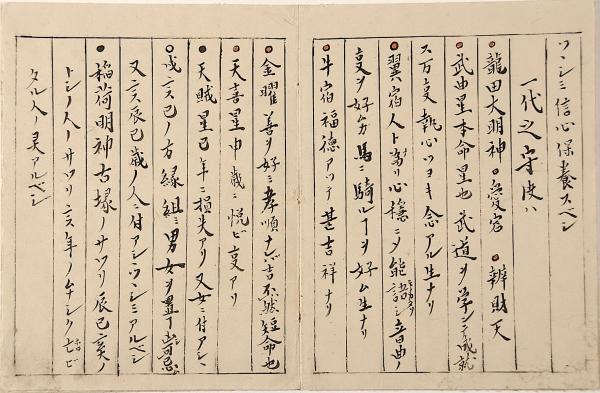 ツヽシミ信心保養スベシ
一代之守使ハ
●龍田大明神 ○愛宕 ●辨財天
●武曲星本命星也 武道ヲ学シテ成就
ス万事執心ツヨキ念アル生ナリ
●翼宿人ト為リ心穏ニメ能語シ音曲ノ
事ヲ好ム方馬ニ騎ルヿヲ好ム生ナリ
●牛宿福徳アツテ甚吉祥ナリ
●金曜善ヲ好ミ孝順ナレバ吉不然短命也
●天喜星申ノ歳ニ悦ビ事アリ
●天賊星巳年ニ損失アリ又女ニ付アシヽ
○戌亥巳ノ方縁組ミ男女ヲ置ヿ皆忌
又亥辰巳歳ノ人ニ付アシヽツヽシミアルベシ
●稲荷明神古塚ノサワリ辰巳亥ノ
トシノ人サワリ亥年ノムナシク亡ビ
タル人ノ灵アルベシ